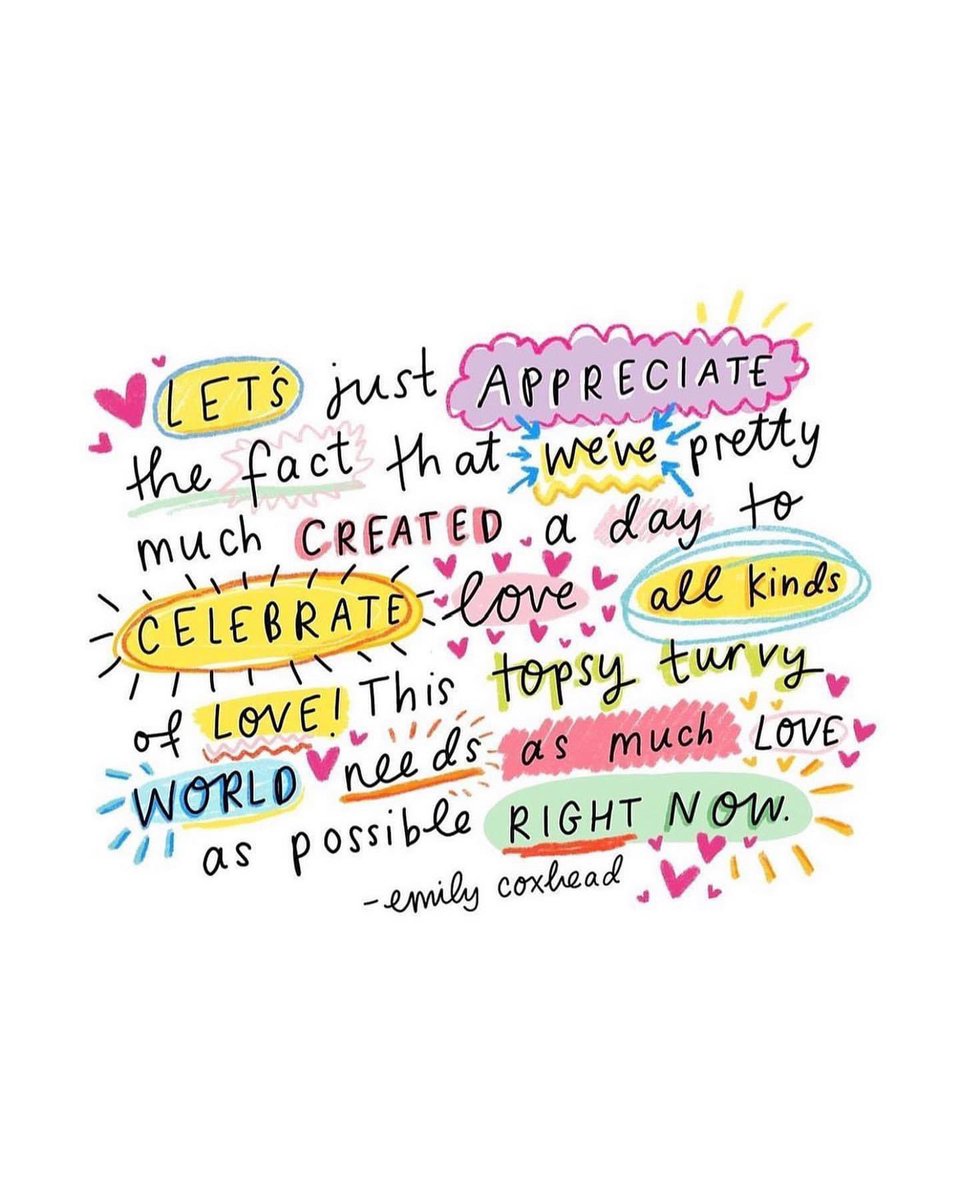 LET'S just APPRECIATE
the fact that we've pretty
much CREATED a day to
CELEBRATE love all kinds
of LOVE! This topsy turvy
WORLD needs as much LOVE
as possible RIGHT NOW.
-emily coxhead